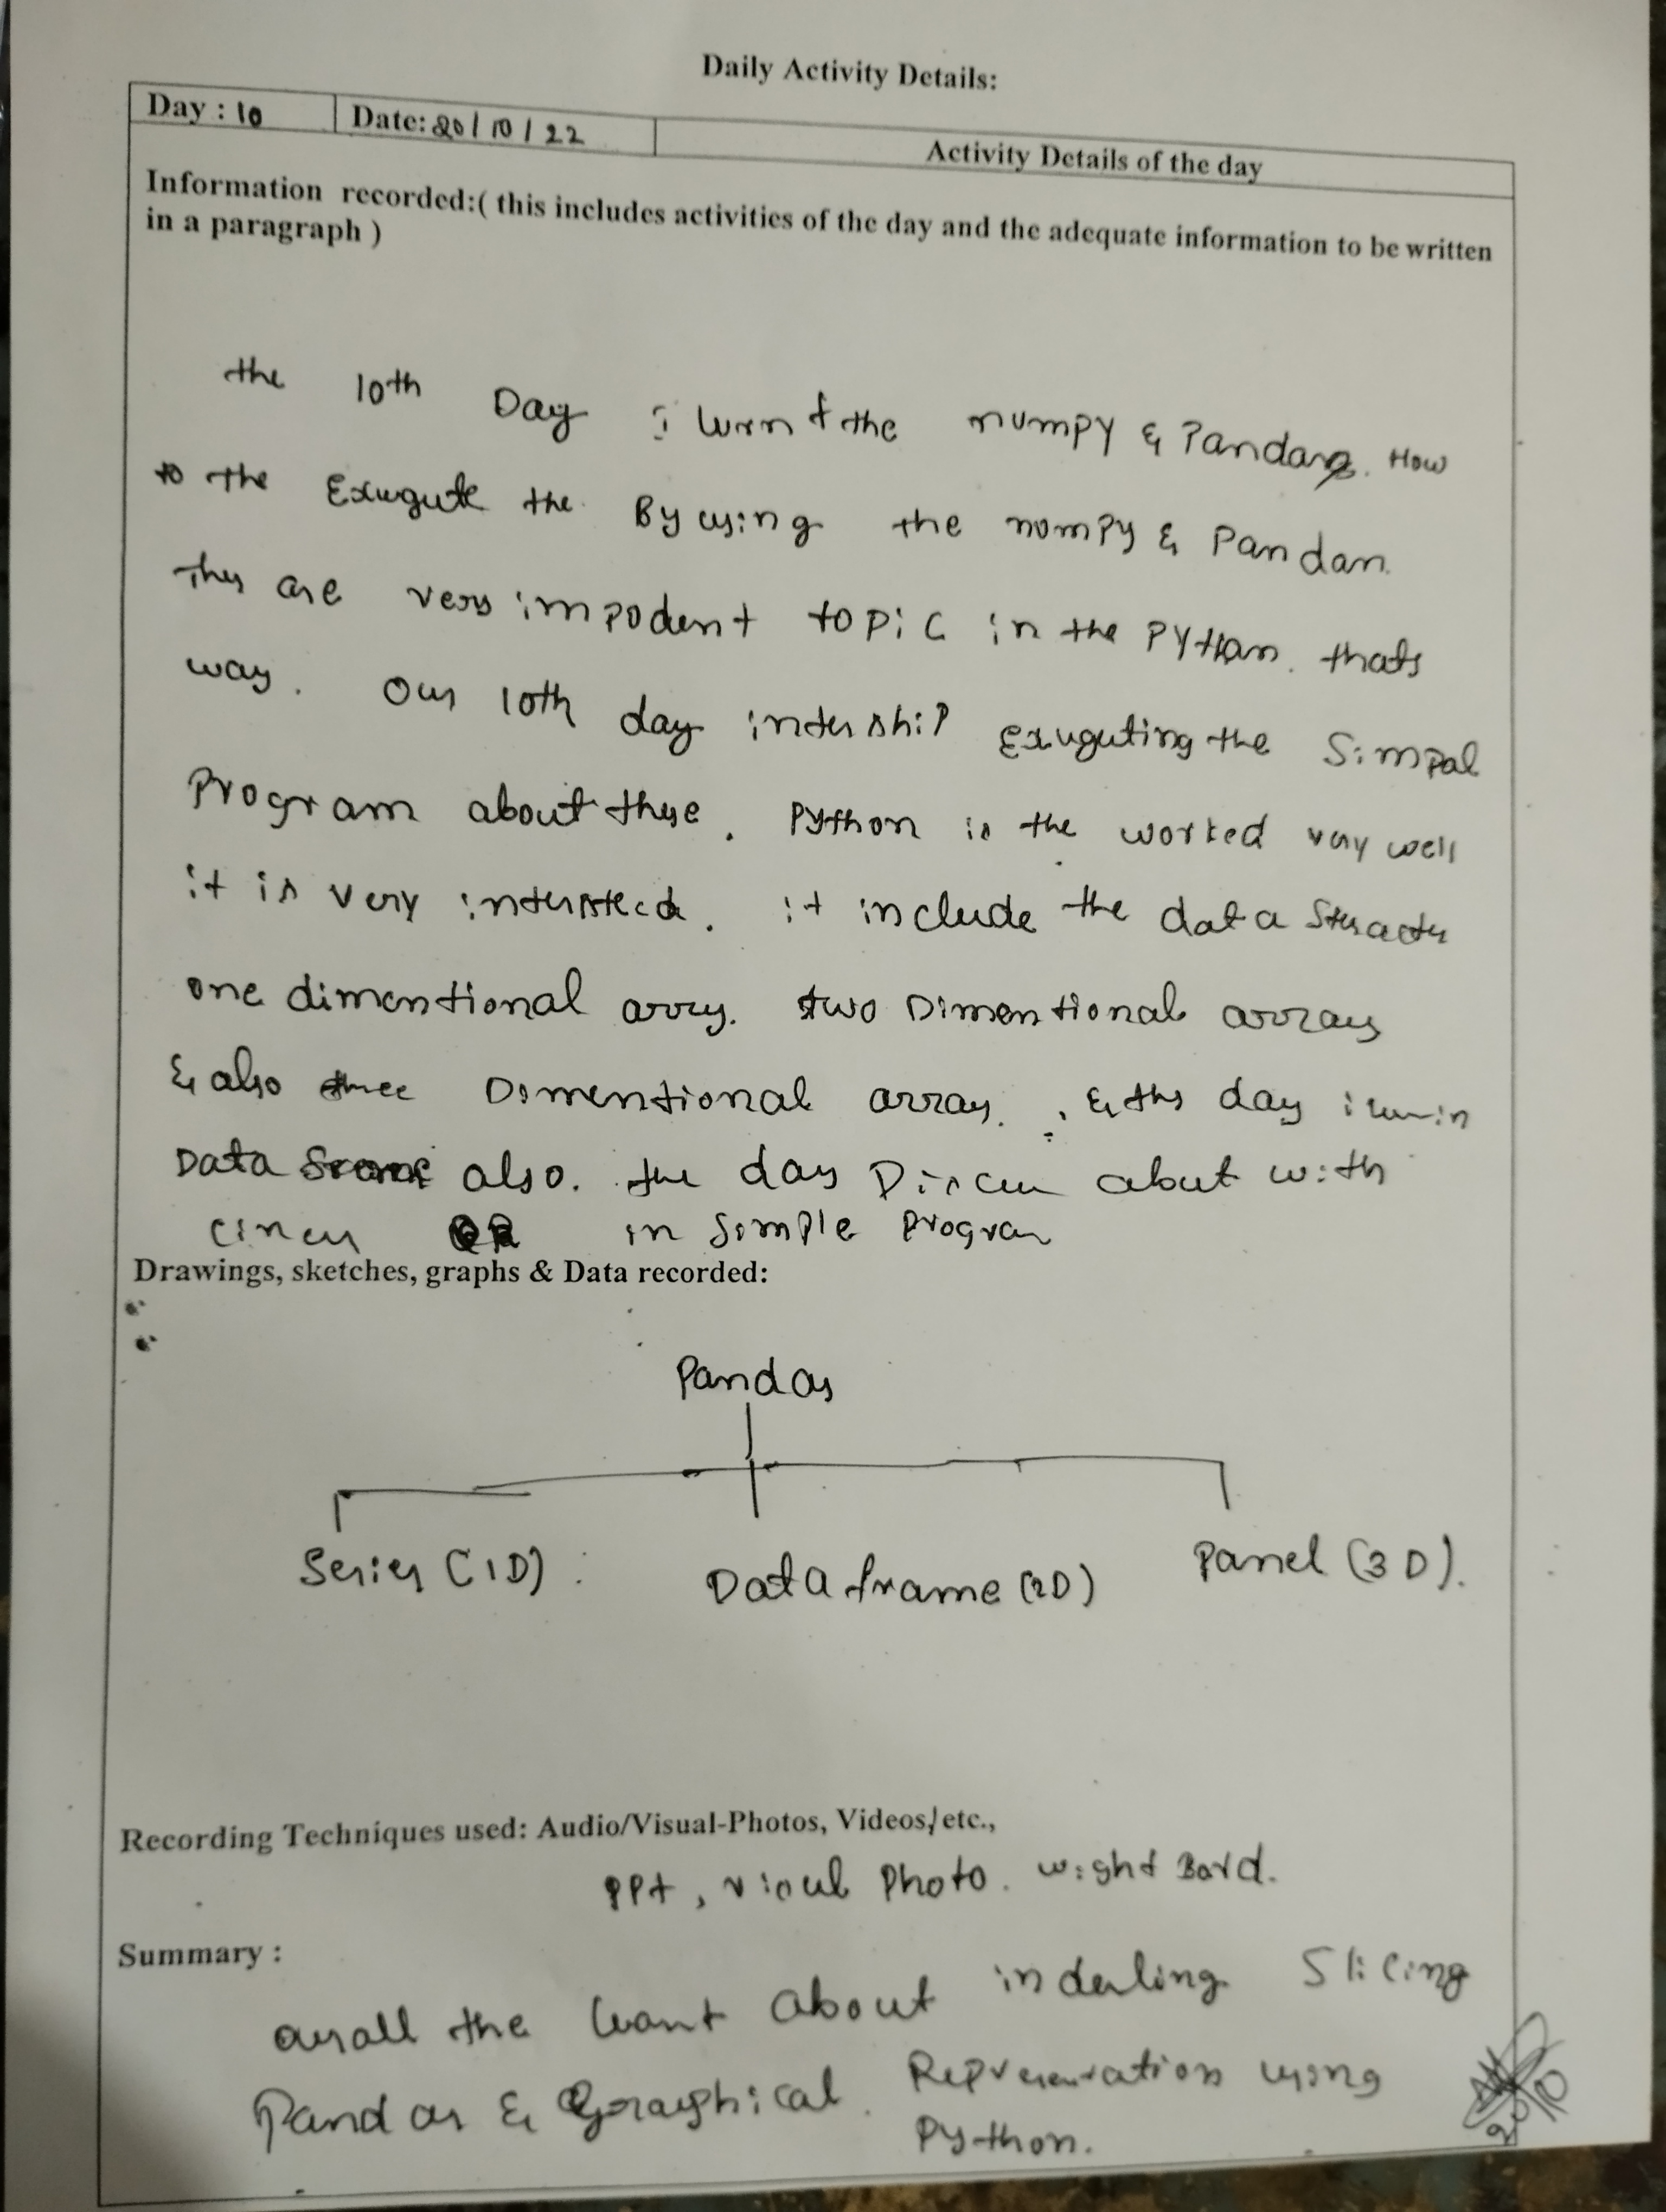 Daily Activity Details:
Day : 10 Date: 20/10/22 Activity Details of the day
Information recorded:( this includes activities of the day and the adequate information to be written
in a paragraph )
the 10th Day i lurnt the numpy & Pandas. How
to the Exugute the By using the numpy & Pandan.
They are very impodent topic in the Python. thats
way. Our 10th day intership Exuguting the Simpal
Program about these. Python is the worked very well
it is very intersteed. it include the data
one dimentional arry. two Dimentional array
& also three Dimentional array. & this day i
Data also. the day about with
in Simple Program
Drawings, sketches, graphs & Data recorded:
Pandas
Series (1D) : Data frame (2D) Panel (3D).
Recording Techniques used: Audio/Visual-Photos, Videos,/etc.,
PPt, Photo. wight Bord.
Summary :
the about Slicing
Pandas & Graphical Representation using
Python.
20/10